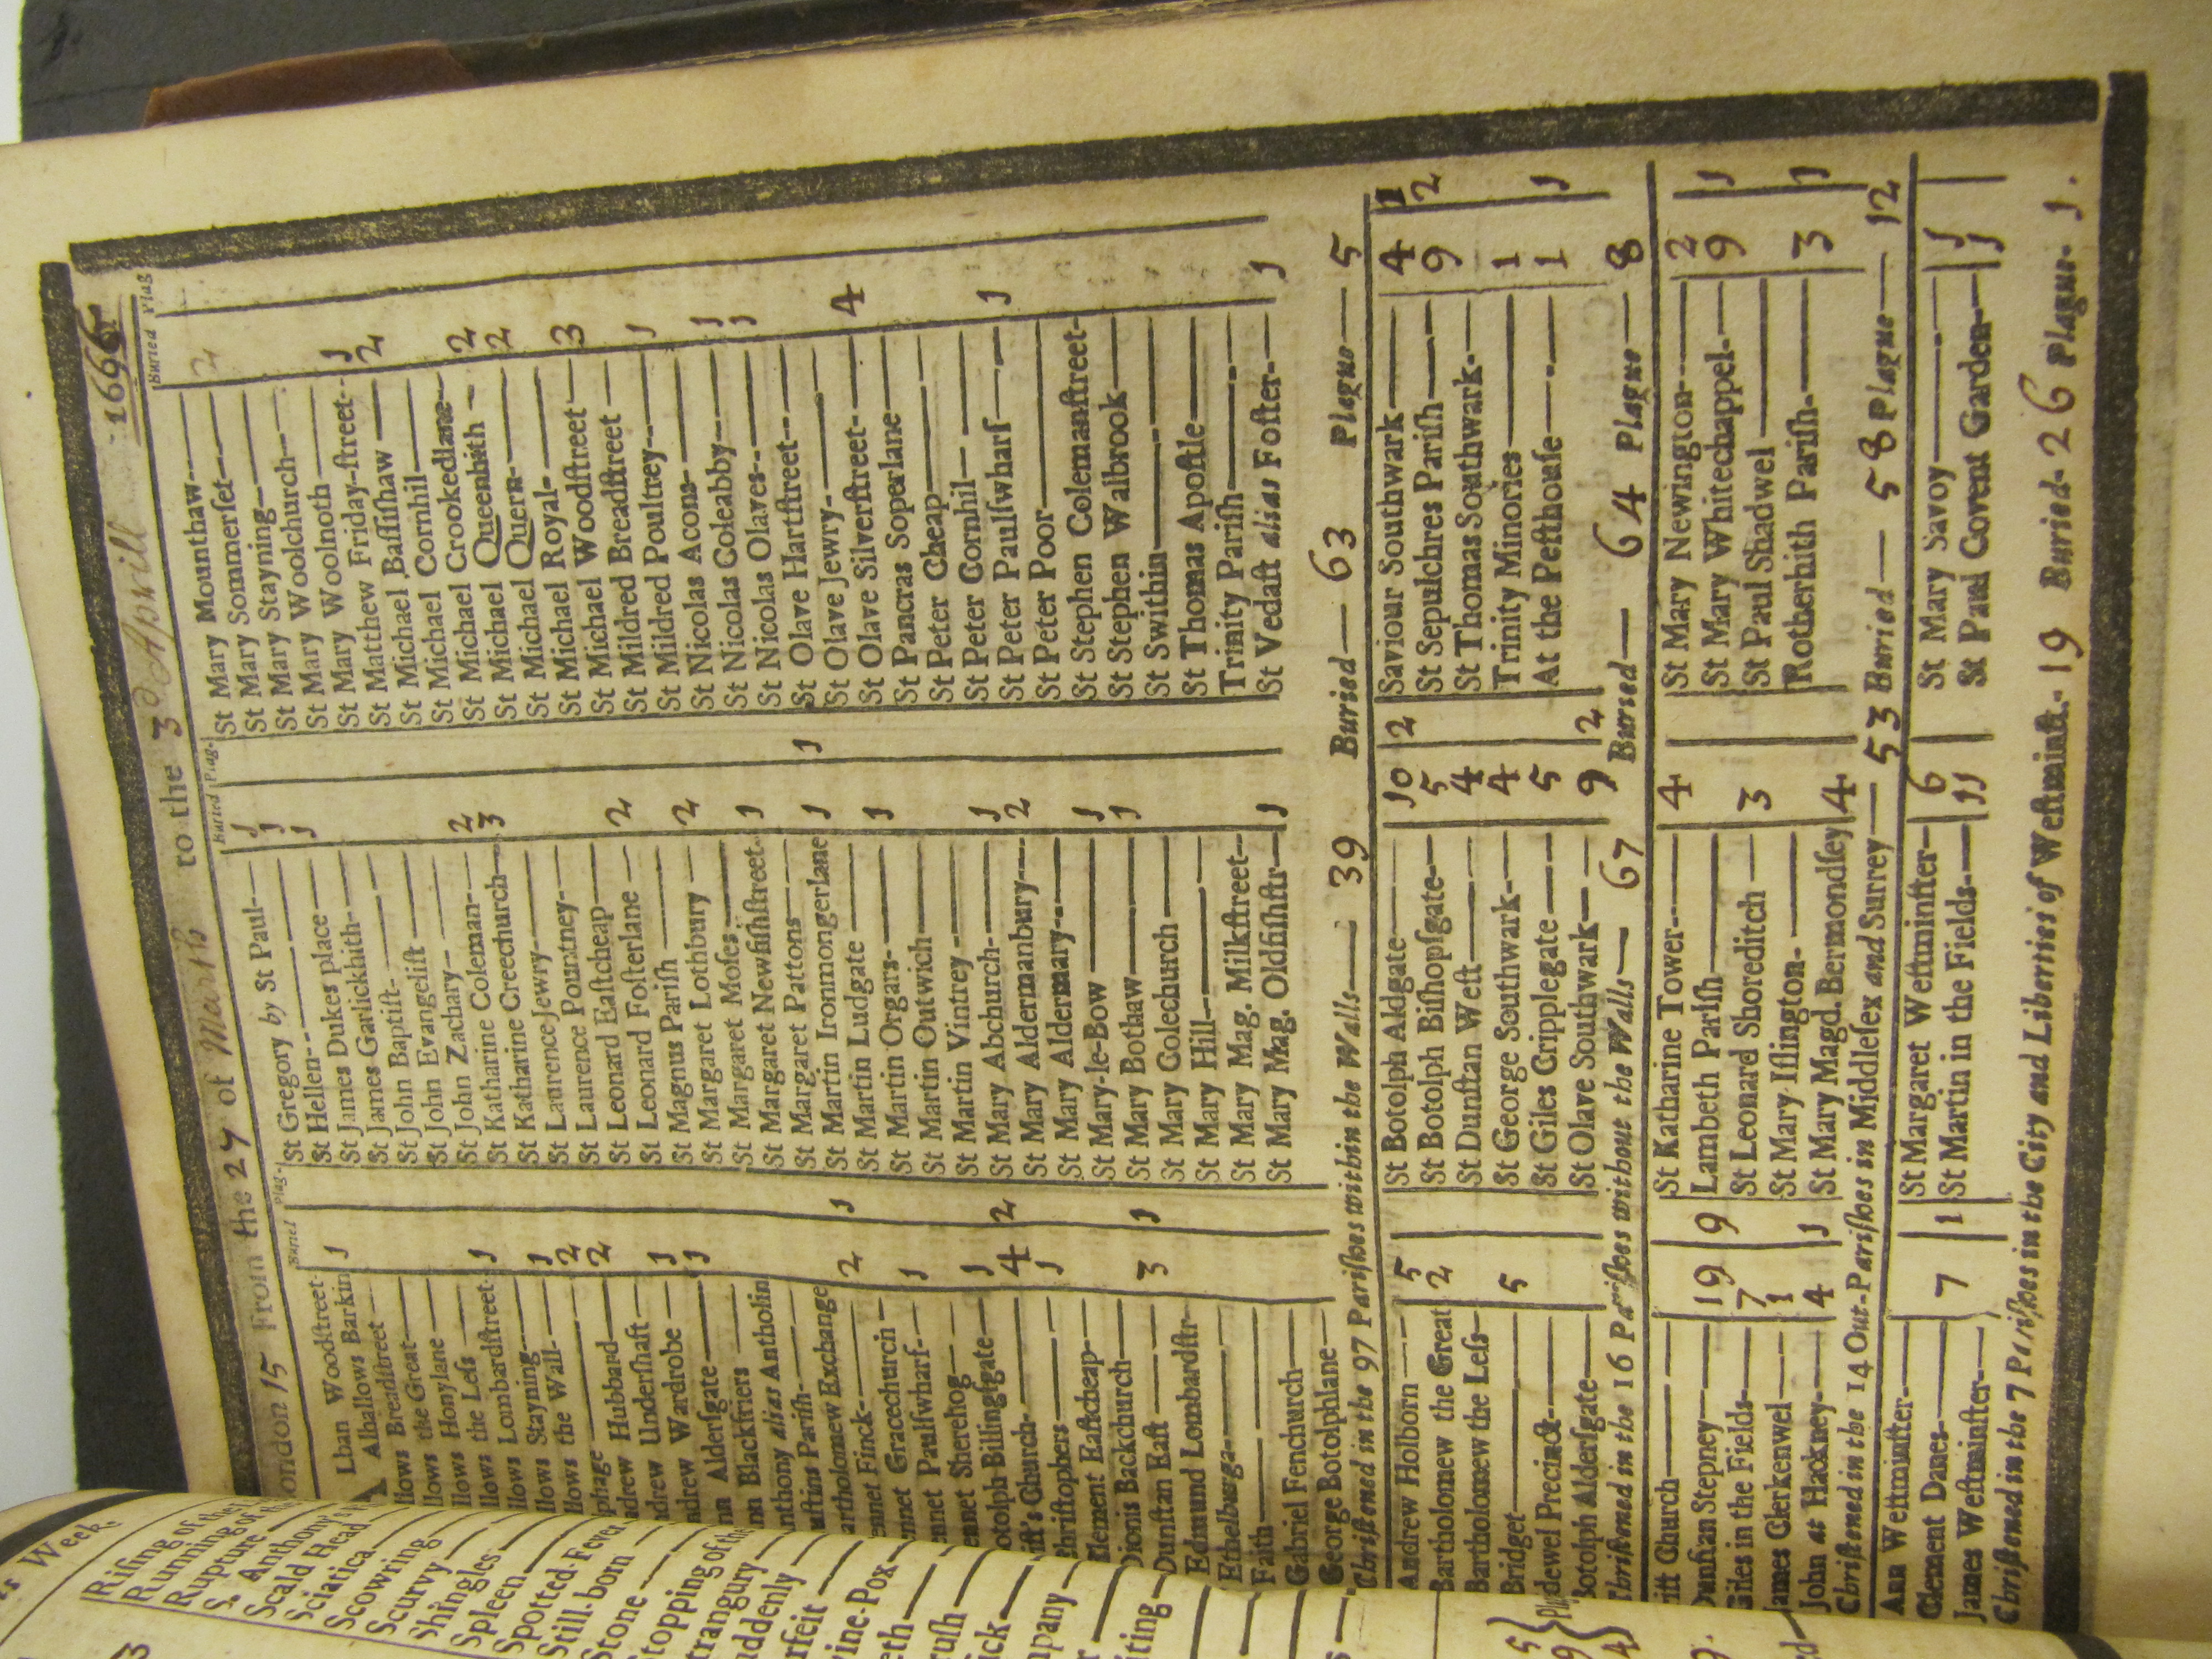 ondon 15 From the 27 of March to the 3d Aprill 1666
Buried Plag.
Lban Woodſtreet
A Alhallows Barkin 1
llows Breadſtreet
llows the Great
llows Honylane
llows the Leſs
llows Lombardſtreet 1
llows Stayning
llows the Wall 1
phage 2
ndrew Hubbard 2
ndrew Underſhaft
ndrew Wardrobe 1
nn Alderſgate 1
nn Blackfriers
nthony alias Antholin
uſtins Pariſh
artholomew Exchange
ennet Finck 2 1
nnet Gracechurch
nnet Paulſwharf 1
ennet Sherehog
otolph Billingſgate 1
iſt's Church 4 2
hriſtophers 1
lement Eaſtcheap
Dionis Backchurch
Dunſtan Eaſt 3 1
Edmund Lombardſtr
Ethelburga
Faith
Gabriel Fenchurch
George Botolphlane
Buried Plag.
St Gregory by St Paul 1
St Hellen 1
St James Dukes place 1
St James Garlickhith
St John Baptiſt
St John Evangeliſt
St John Zachary
St Katharine Coleman 2
St Katharine Creechurch 3
St Laurence Jewry
St Laurence Pountney
St Leonard Eaſtcheap
St Leonard Foſterlane 2
St Magnus Pariſh
St Margaret Lothbury 2
St Margaret Moſes
St Margaret Newfiſhſtreet 1
St Margaret Pattons
St Martin Ironmongerlane 1 1
St Martin Ludgate
St Martin Orgars 1
St Martin Outwich
St Martin Vintrey
St Mary Abchurch 1
St Mary Aldermanbury 2
St Mary Aldermary
St Mary-le-Bow 1
St Mary Bothaw 1
St Mary Colechurch
St Mary Hill
St Mary Mag. Milkſtreet
St Mary Mag. Oldfiſhſtr 1
Buried Plag
St Mary Mounthaw 2
St Mary Sommerſet
St Mary Stayning
St Mary Woolchurch
St Mary Woolnoth
St Matthew Friday-ſtreet 1
St Michael Baſſiſhaw 2
St Michael Cornhil
St Michael Crookedlane
St Michael Queenhith 2
St Michael Quern 2
St Michael Royal
St Michael Woodſtreet 3
St Mildred Breadſtreet
St Mildred Poultrey 1
St Nicolas Acons
St Nicolas Coleabby 1
St Nicolas Olaves 1
St Olave Hartſtreet
St Olave Jewry
St Olave Silverſtreet 4
St Pancras Soperlane
St Peter Cheap
St Peter Cornhil
St Peter Paulſwharf 1
St Peter Poor
St Stephen Colemanſtreet
St Stephen Walbrook
St Swithin
St Thomas Apoſtle
Trinity Pariſh
St Vedaſt alias Foſter 1
Chriſtened in the 97 Pariſhes within the Walls 39 Buried 63 Plague 5
Andrew Holborn 5
Bartholomew the Great 2
Bartholomew the Leſs
Bridget 5
dewel Precinct
otolph Alderſgate
St Botolph Aldgate 10 2
St Botolph Biſhopſgate 5
St Dunſtan Weſt 4
St George Southwark 4
St Giles Cripplegate 5
St Olave Southwark 9 2
Saviour Southwark 4 1
St Sepulchres Pariſh 9 2
St Thomas Southwark
Trinity Minories 1
At the Peſthouſe 1 1
hriſtened in the 16 Pariſhes without the Walls 67 Buried 64 Plague 8
riſt Church
Dunſtan Stepney 19 9
Giles in the Fields 7
James Clerkenwel 1
John at Hackney 4 1
St Katharine Tower 4
Lambeth Pariſh
St Leonard Shoreditch 3
St Mary Iſlington
St Mary Magd. Bermondſey 4
St Mary Newington 2
St Mary Whitechappel 9 1
St Paul Shadwel
Rotherhith Pariſh 3 1
Chriſtened in the 14 Out-Pariſhes in Middleſex and Surrey 53 Buried 58 Plague 12
Ann Weſtminſter
Clement Danes 7 1
James Weſtminſter
St Margaret Weſtminſter 6
St Martin in the Fields 11
St Mary Savoy 1
St Paul Covent Garden 1
Chriſtened in the 7 Pariſhes in the City and Liberties of Weſtminſt. 19 Buried 26 Plague 1.
s Week.
Riſing of the
Running of the
Rupture
S. Anthony's
Scald Head
Sciatica
Scowring
Scurvy
Shingles
Spleen
Spotted Fever
Still-born
Stone
topping of the
trangury
uddenly
rfeit
ine-Pox
eth
ruſh
ick
mpany
iting